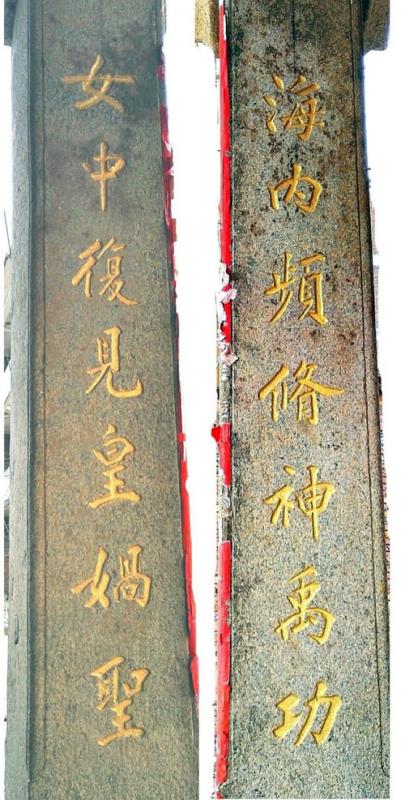 海内頻脩神禹功
女中復見皇媧聖